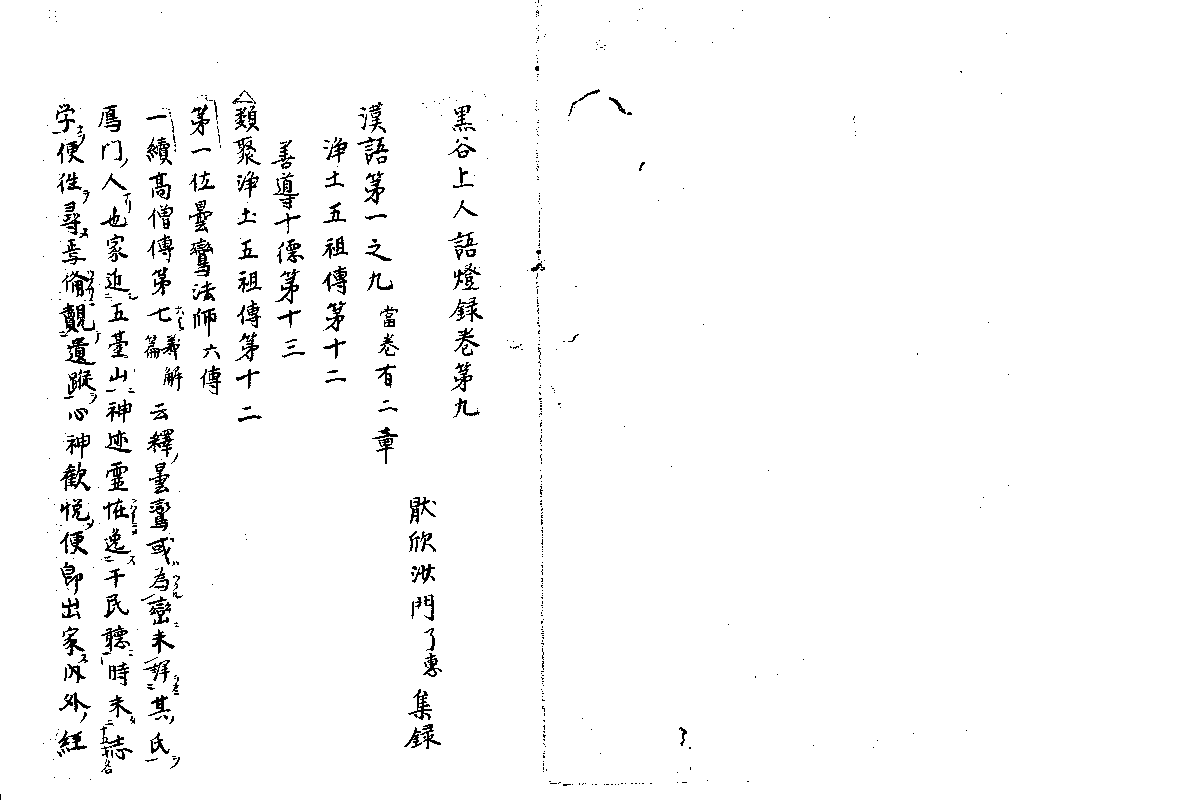 黒谷上人語燈録巻第九
厭欣沙門了恵集録
漢語第一之九 當巻有二章
浄土五祖傳第十二
善導十徳第十三
類聚浄土五祖傳第十二
第一位曇鸞法師六傳
一續高僧傳第七義解篇云釋曇鸞或為巒未詳其氏
鴈門人也家近五臺山神迹霊怪逸于民聴時未志
学便往尋焉備覿遺蹤心神歓悦便即出家内外経